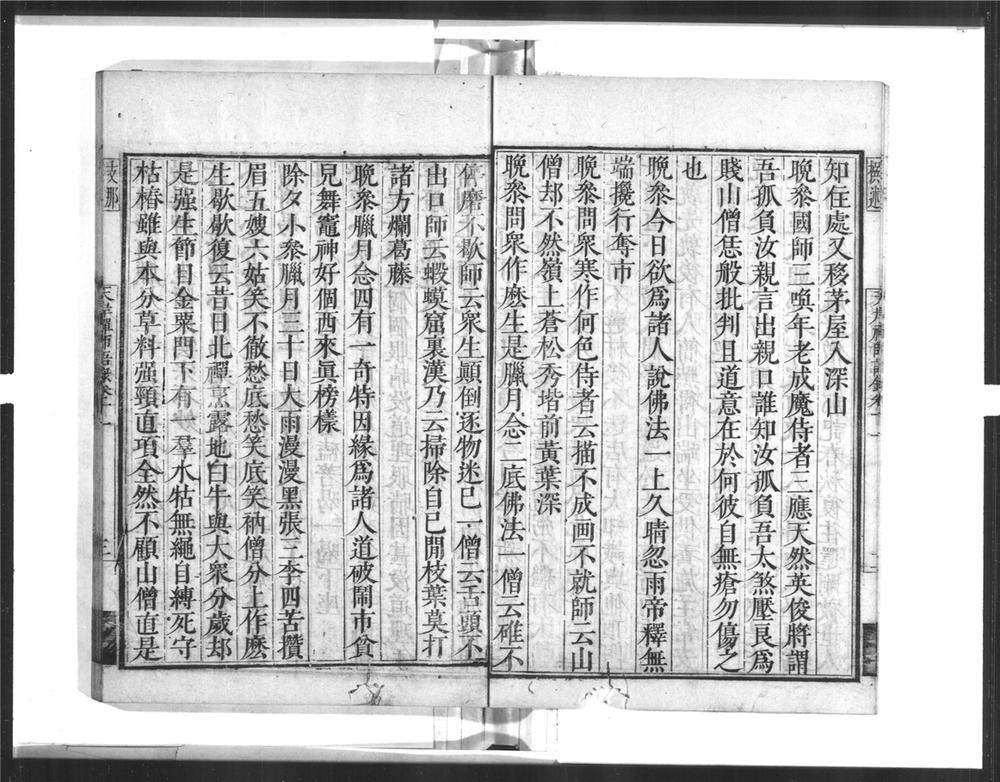 知住處又移茅屋入深山
晚參國師三喚年老成魔侍者三應天然英俊將謂
吾孤負汝親言出親口誰知汝孤負吾太煞壓良爲
賤山僧恁般批判且道意在於何彼自無瘡勿傷之
也
晚參今日欲爲諸人說佛法一上久晴忽雨帝釋無
端攙行奪市
晚參問衆寒作何色侍者云描不成画不就師云山
僧却不然嶺上蒼松秀堦前黃葉深
晚參問衆作麽生是臘月念二底佛法一僧云碓不
磨不歇師云衆生顚倒逐物迷已一僧云舌頭不
出口師云蝦蟆窟裏漢乃云掃除自己閒枝葉莫打
諸方爛葛藤
晚參臘月念四有一奇特因緣爲諸人道破鬧市貧
兒舞竈神好個西來眞榜樣
除夕小參臘月三十日大雨漫漫黑張三李四苦攢
眉五嫂六姑笑不徹愁底愁笑底笑衲僧分上作麽
生歇歇復云昔日北禪烹露地白牛與大衆分歲却
是强生節目金粟門下有一羣水牯無繩自縛死守
枯樁雖與本分草料强頸直項全然不顧山僧直是